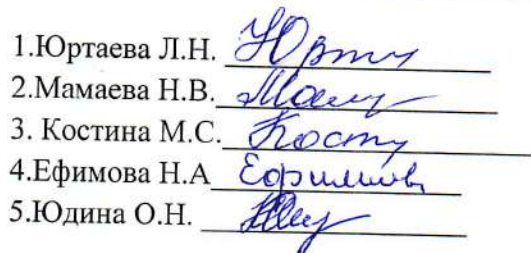 1.Юртаева Л.Н.
2.Мамаева Н.В.
3. Костина М.С.
4.Ефимова Н.А Ефимова
5.Юдина О.Н.